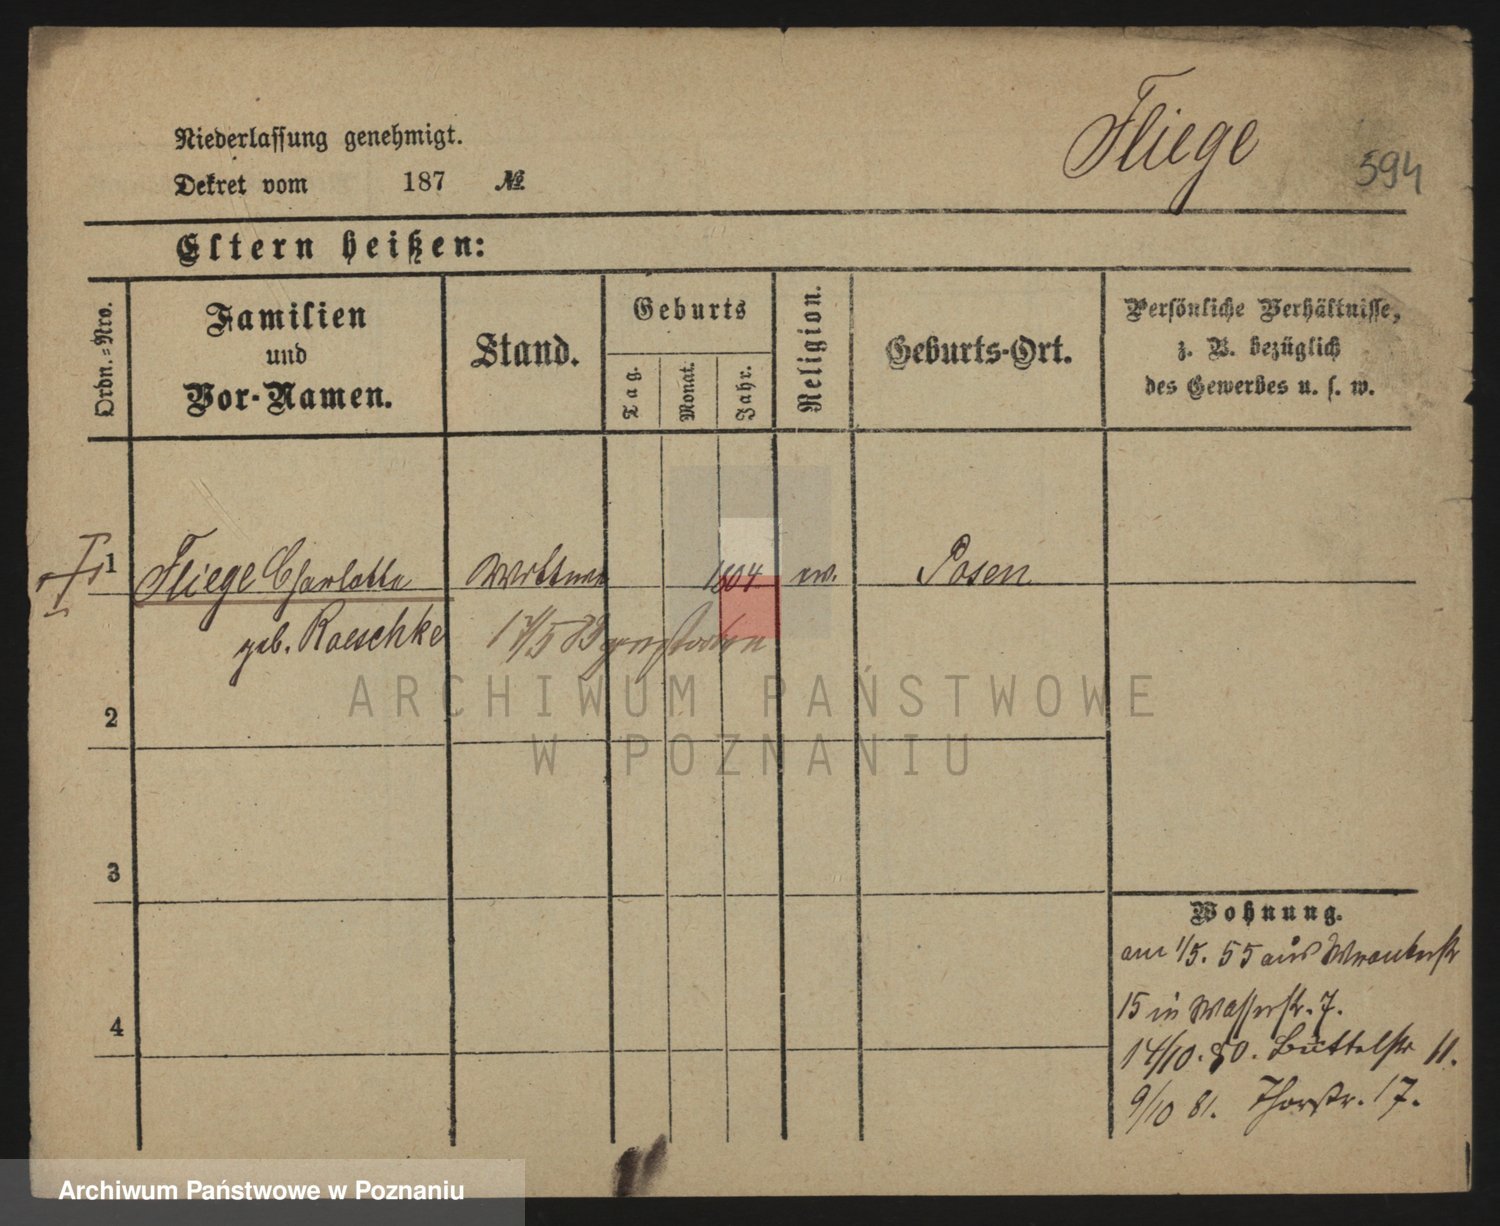 Fliege
594
Niederlassung genehmigt.
Dekret vom 187 №
Eltern heißen:
Ordn.=Nro.
Familien
und
Vor-Namen.
Stand.
Geburts
Tag.
Monat.
Jahr.
Religion.
Geburts-Ort.
Persönliche Verhältnisse,
z. B. bezüglich
des Gewerbes u. s. w.
1 Fliege Charlotte Wittwe 1804 ev. Posen
geb. Raeschke 17/5 83 gestorben
ARCHIWUM PAŃSTWOWE
W POZNANIU
2
3
4
Wohnung.
am 1/5. 55 aus
15 in Wasserstr. 7.
14/10. 80. Büttelstr 11.
9/10 81. Thorstr. 17.
Archiwum Państwowe w Poznaniu